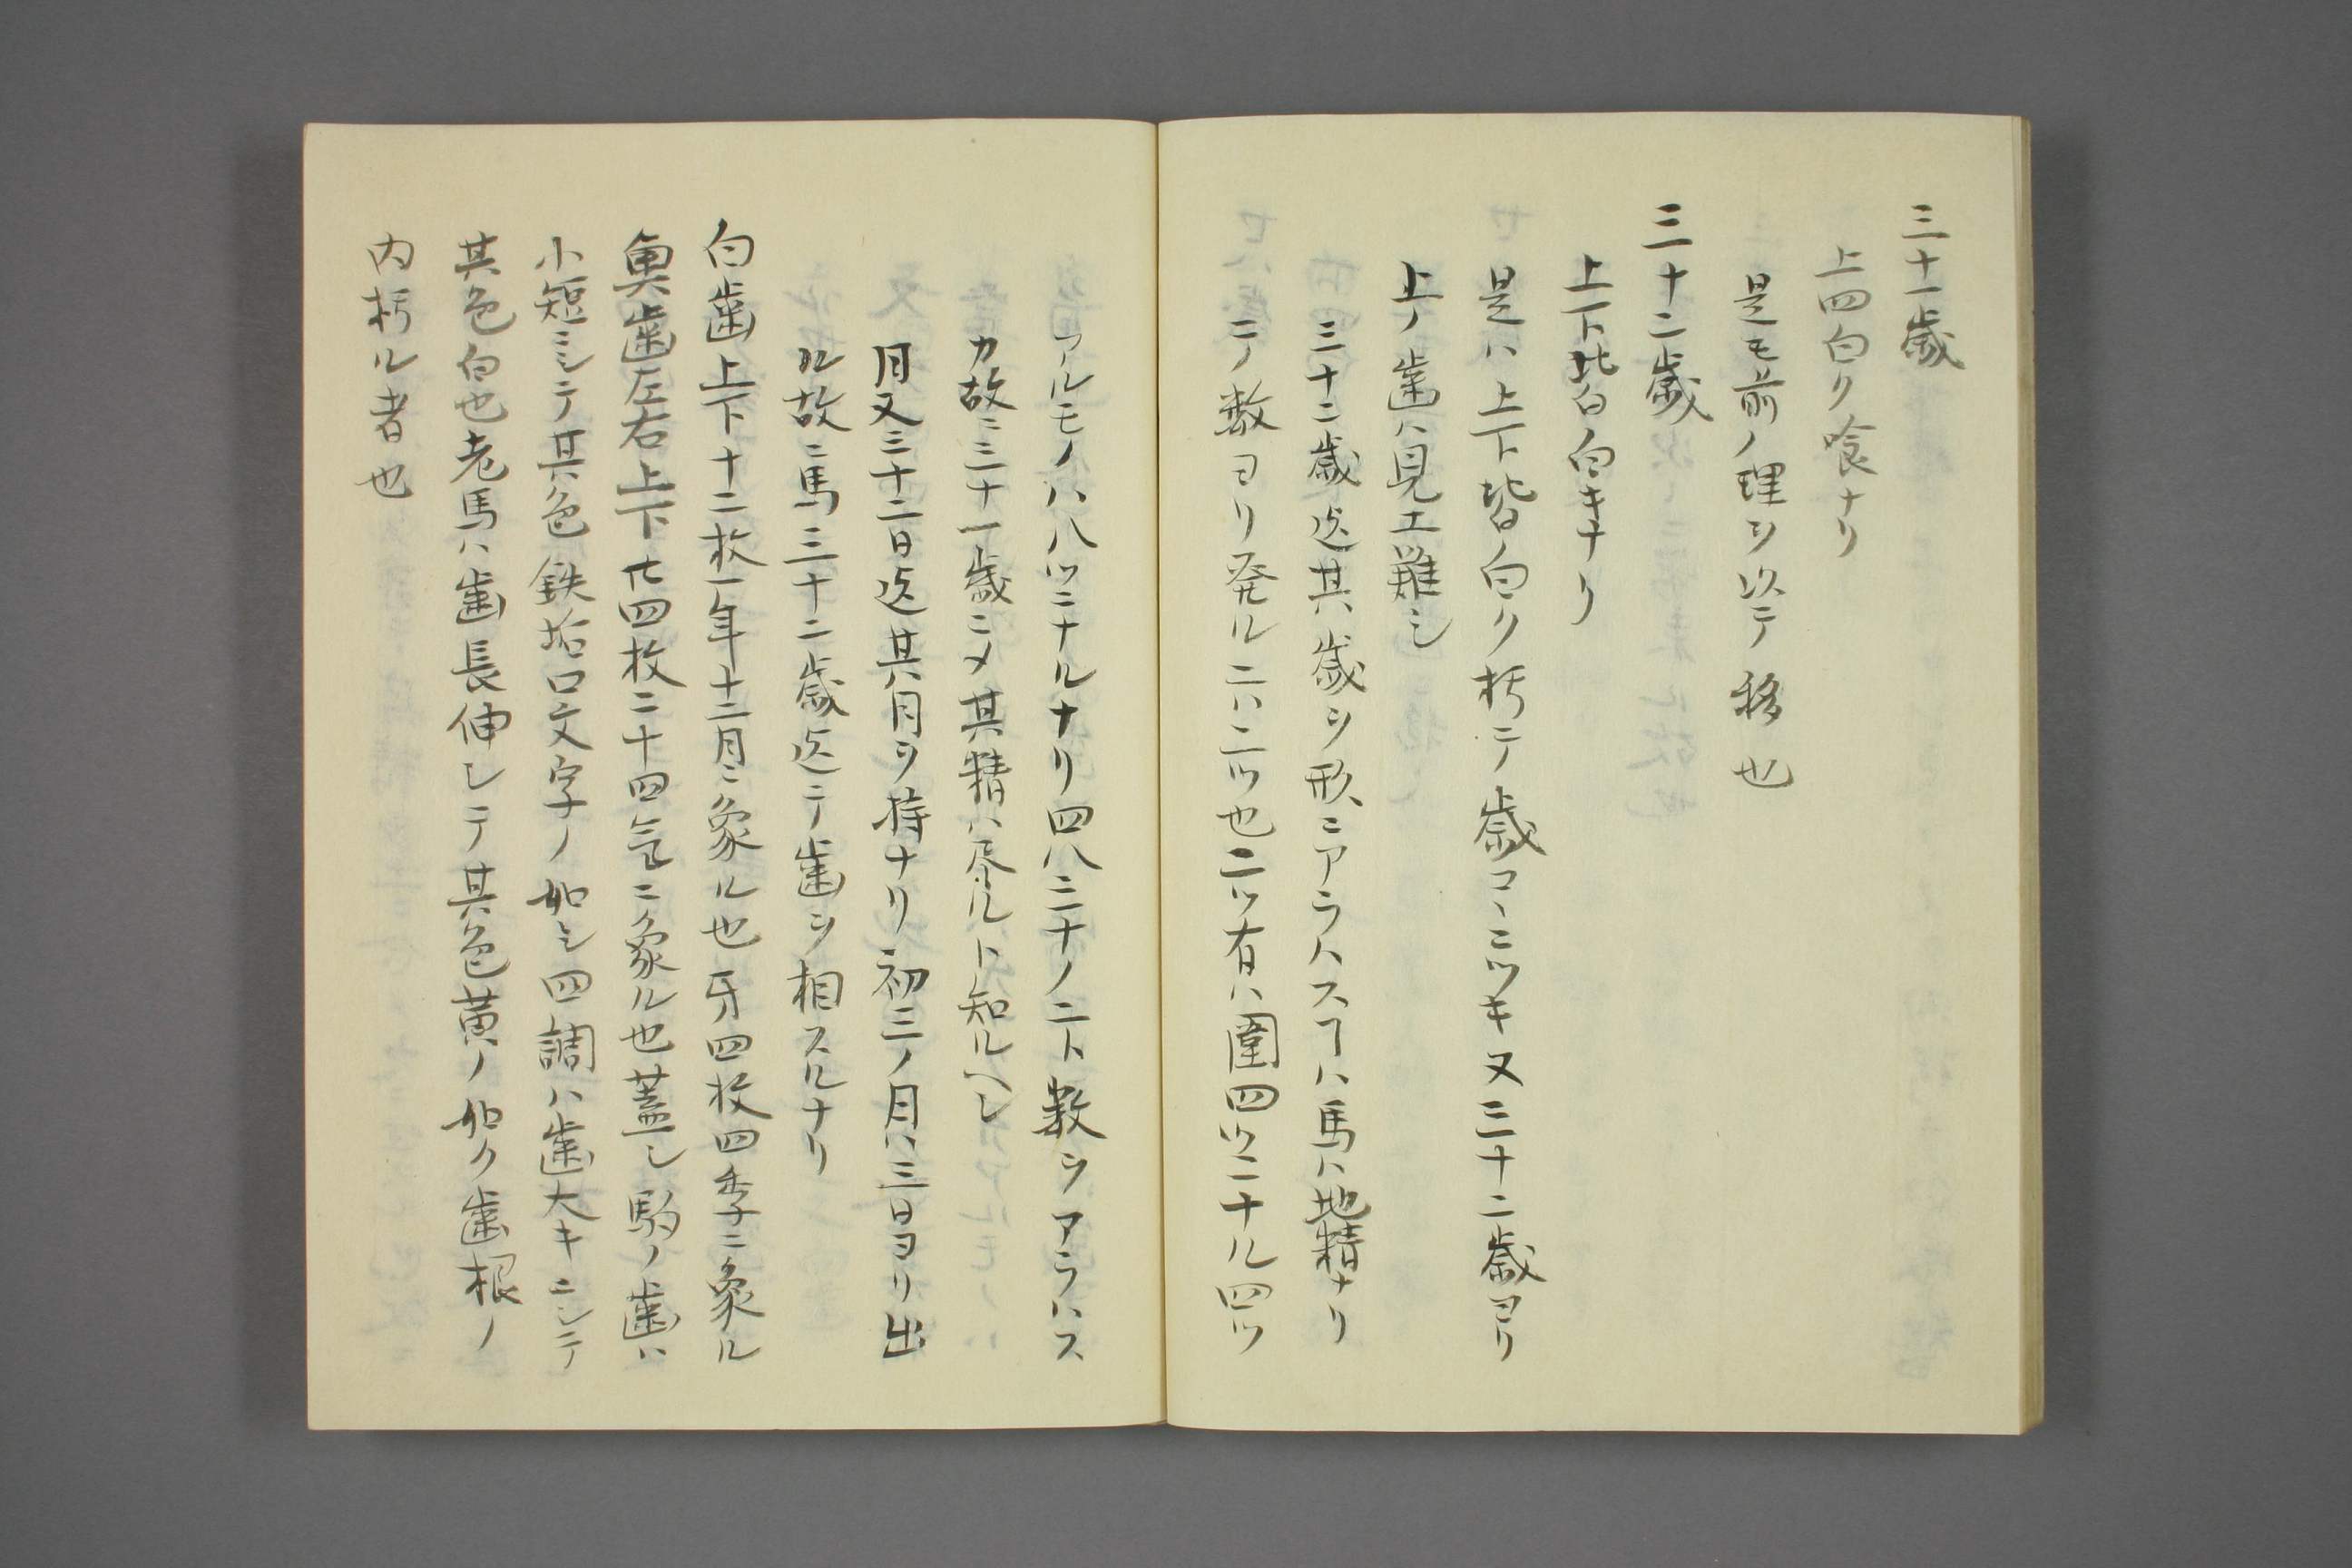 三十一歳
上四白ク喰ナリ
是モ前ノ理ヲ以テ移也
三十二歳
上下皆白キナリ
是ハ上下皆白ク朽テ歳コヽニツキ又三十二歳ヨリ
上ノ歯ハ見エ難シ
三十二歳迄其ハ歳ヲ形ニアラハスヿハ馬ハ地精ナリ
二ノ数ヨリ発ル二ハ二ツ也二ツ有ハ圍四ツニナル四ツ
アルモノハ八ツニナルナリ四八三十ノ二ト数ヲアラハス
カ故ニ三十一歳ニメ其精ハ尽ルト知ルヘシ
月又三十二日迄其月ヲ持ナリ初三ノ月ハ三日ヨリ出
ル故ニ馬三十二歳迄テ歯ヲ相スルナリ
白歯上下十二枚一年十二月ニ象ル也牙四枚四季ニ象ル
奥歯左右上下廿四枚二十四気ニ象ル也蓋シ駒ノ歯ハ
小短ミシテ其色鉄垢口文字ノ如シ四調ハ歯大キニシテ
其色白也老馬ハ歯長伸シテ其色黄ノ如ク歯根ノ
内朽ル者也